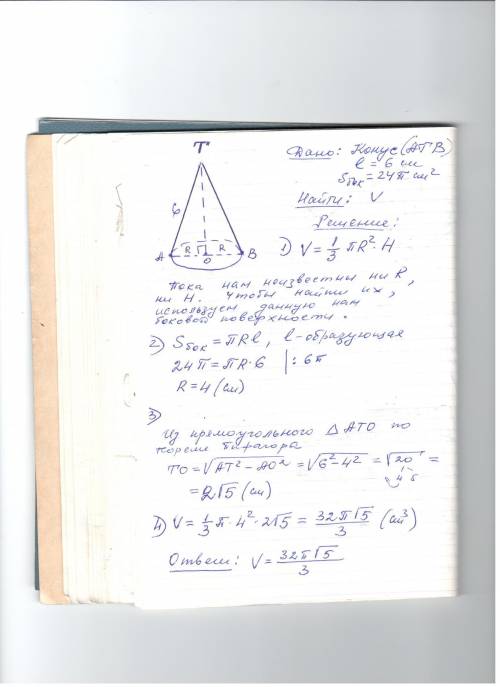 T
6
A
R
R
O
B
Дано: Конус (АТВ)
l = 6 см
Sбок = 24π см²
Найти: V
Решение:
1) V = 1/3 πR²·H
Пока нам неизвестны ни R,
ни H. Чтобы найти их,
используем данную нам
боковой поверхности.
2) Sбок = πRl, l - образующая
24π = πR·6 |:6π
R = 4 (см)
3)
Из прямоугольного △ АТО по
теореме Пифагора
TO = √AT² - AO² = √6² - 4² = √20 =
4 5
= 2√5 (см)
4) V = 1/3 π·4²·2√5 = 32π√5/3 (см³)
Ответ: V = 32π√5/3